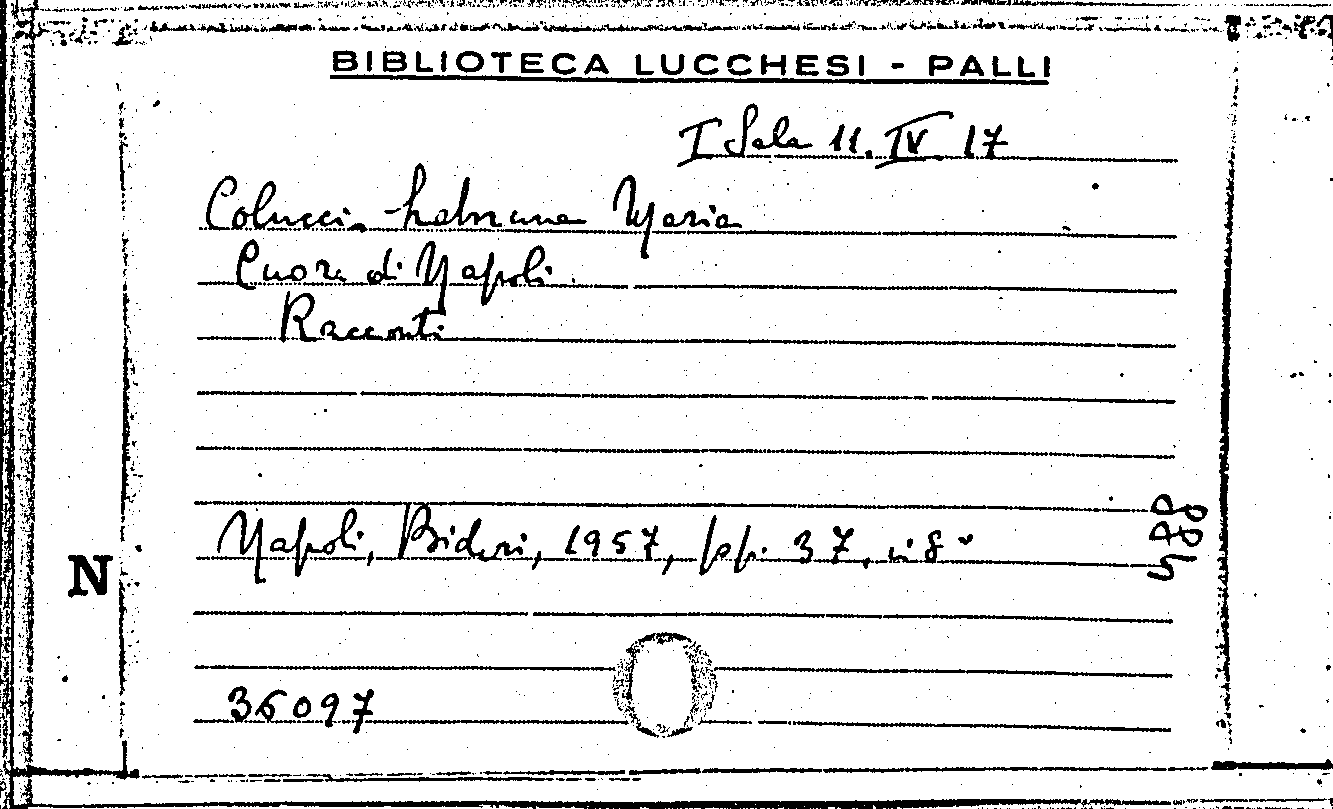 BIBLIOTECA LUCCHESI - PALLI
I Sala 11. IV 17
Colucci Maria
Cuore di Napoli.
Racconti
Napoli, Bideri, 1957, pp. 37, in 8°
N
36097